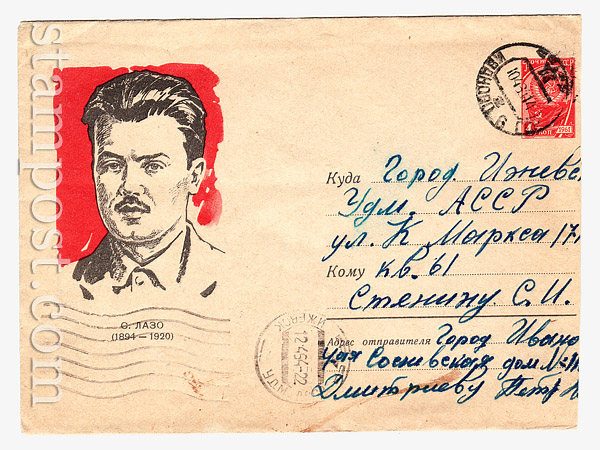 stampost.com
С. ЛАЗО
(1894 — 1920)
Куда Город Ижевс
Удм. АССР
ул. К Маркса 171
Кому кв. 61
Стенину С. И.
Адрес отправителя Город Ивано
Сосневская дом №
Дмитриеву Петр
12464-22